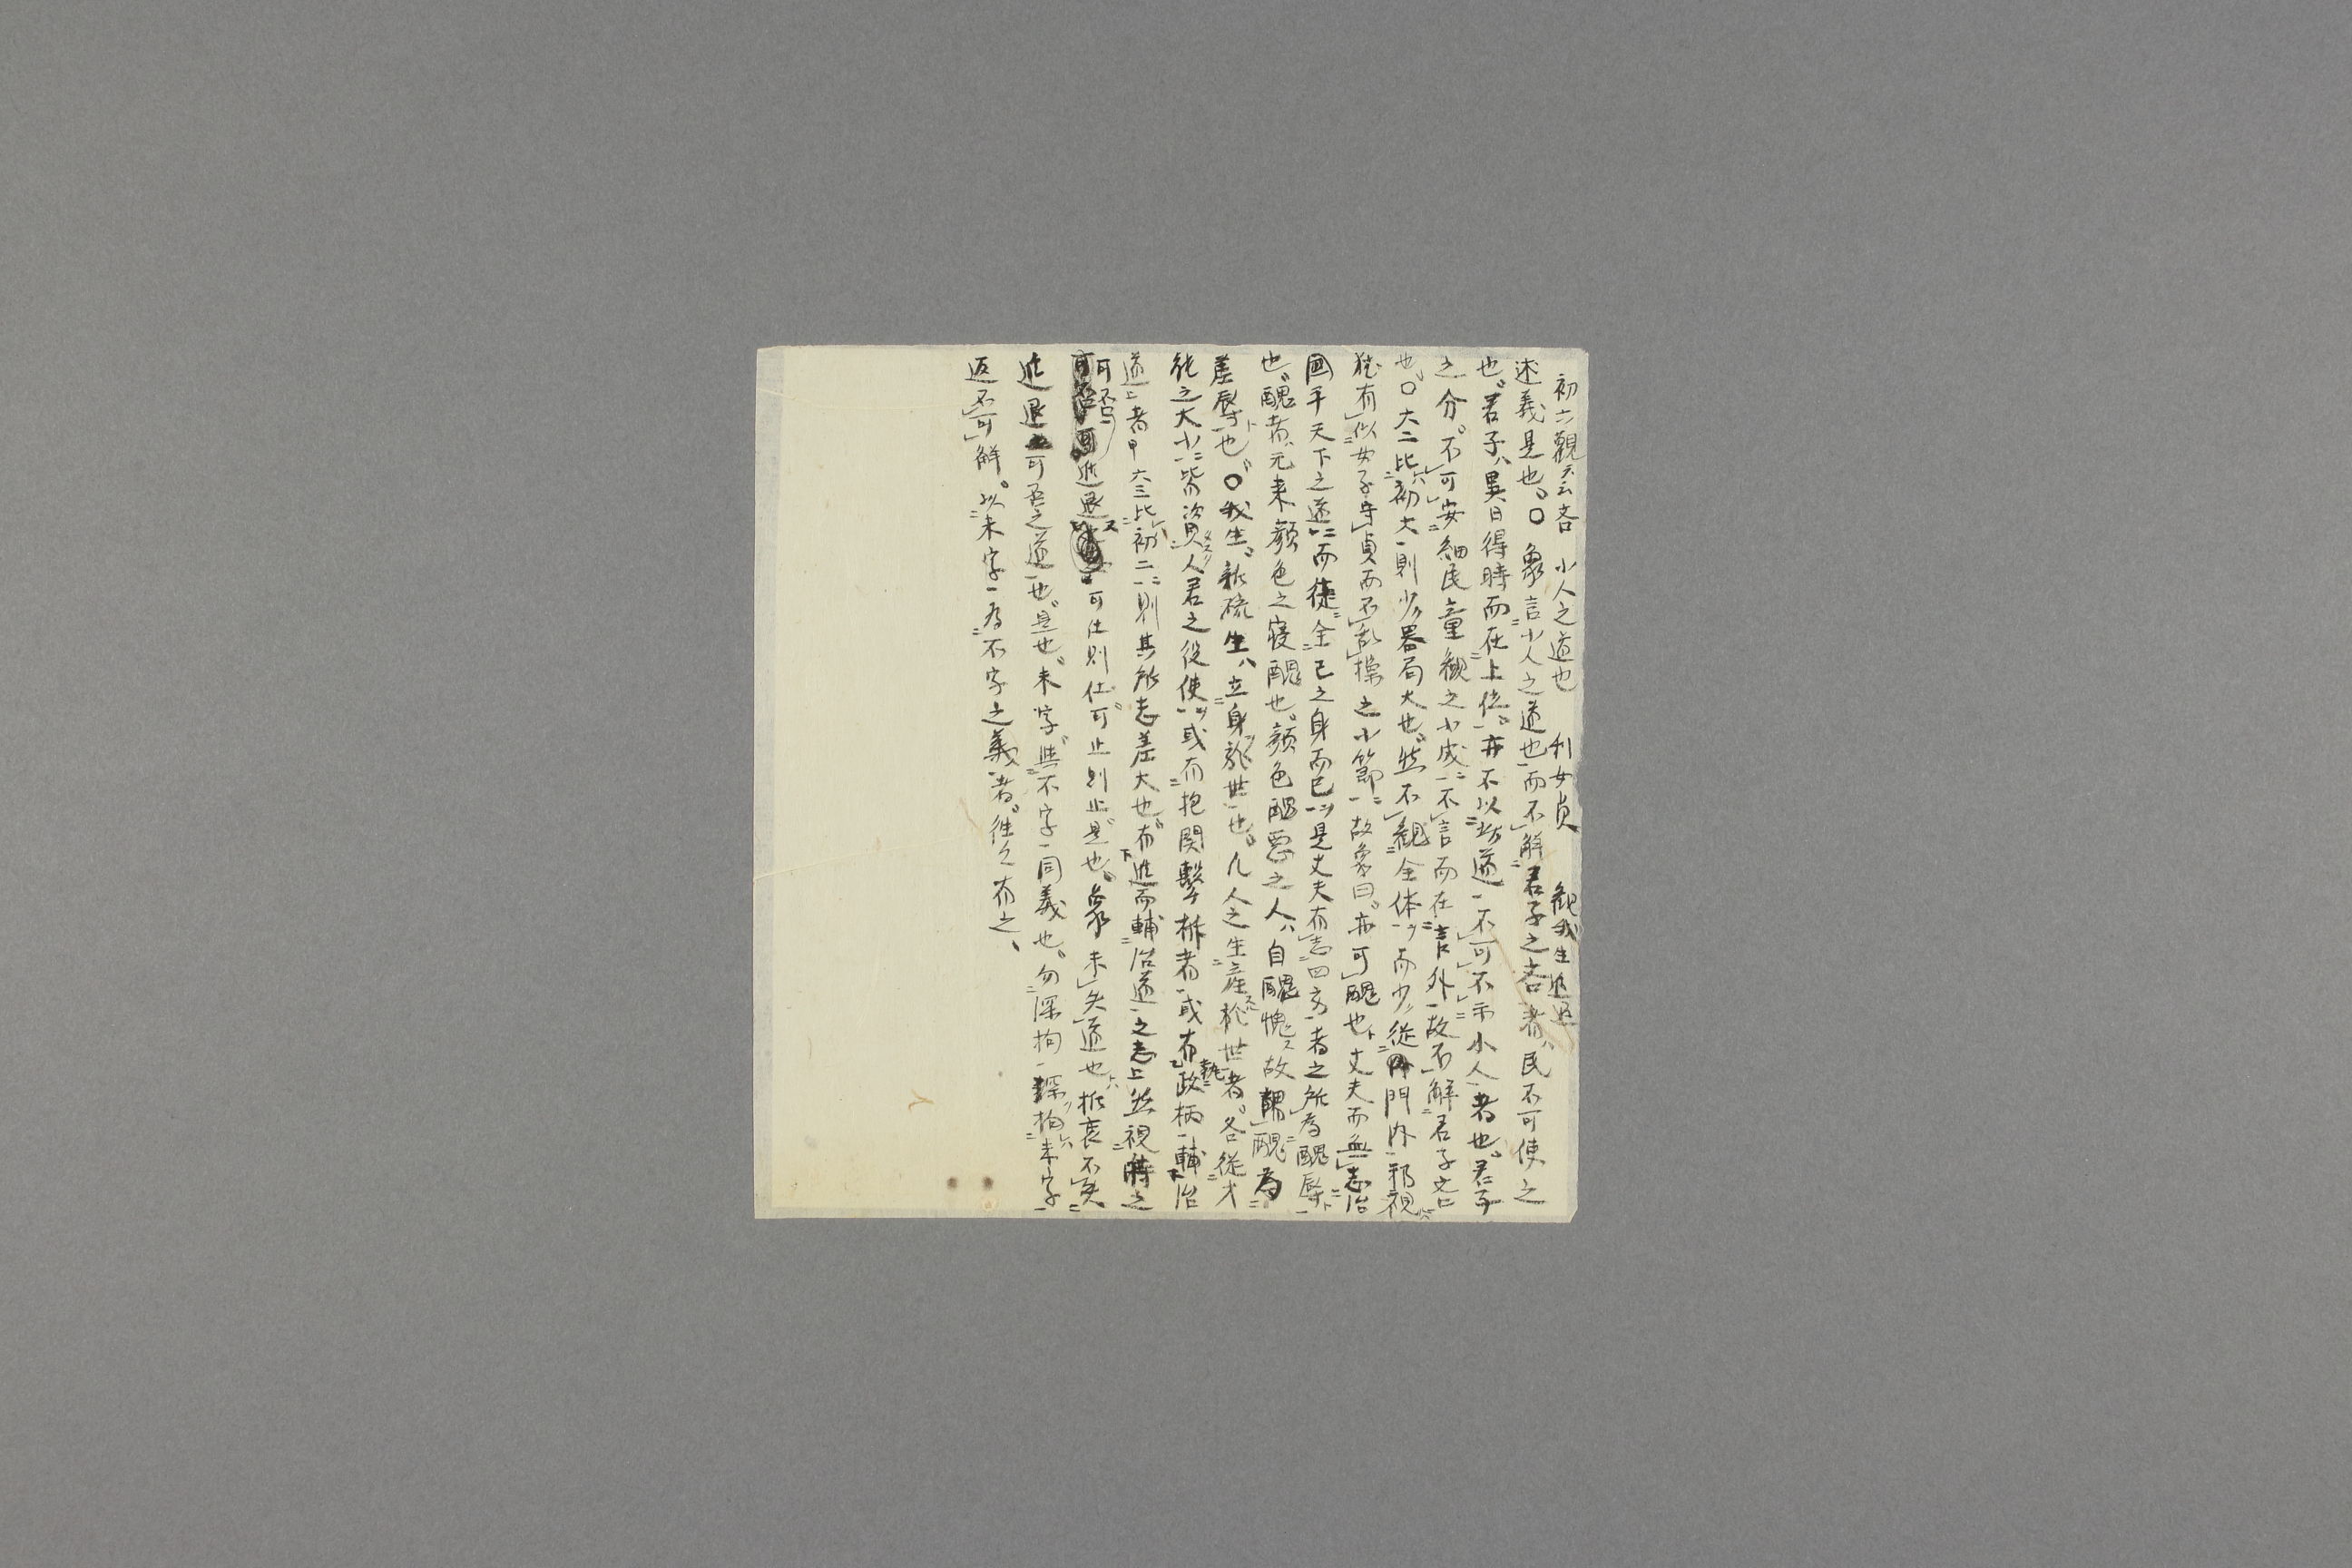 初六觀云云吝 小人之道也 利女貞 觀我生進退
述義是也○象言小人之道也而不解君子之吝者民不可使之
也君子異日得時而在上位亦不以此道不可不示小人者也君子
之分不可安細民童觀之小成不言而在言外故不解君子吝
也○六二比初六則少器局大也然不觀全体而少從門内視
猶有似女子守貞而不乱操之小節故象曰亦可醜也丈夫而無志治
國平天下之道而徒全己之身而已是丈夫有志四方者之所為醜辱
也醜者元来顔色之寝醜也顔色醜惡之人自醜愧故醜為
羞辱也○我生新疏生立身於世也凡人之生産於世者各従才
能之大小皆資人君之役使或有抱関擊柝者或有執政柄輔治
道者六三比初二則其所志差大也有進而輔治道之志上然視時之
可否進退可仕則仕可止則止是也象未失道也折衷不失
進退可否之道也是也未字與不字同義也勿深拘深拘未字
返不可解以未字為不字之義者往々有之